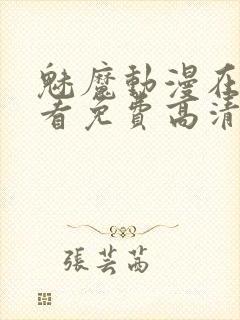 魅魔動漫在
看免費高清
張芸茜